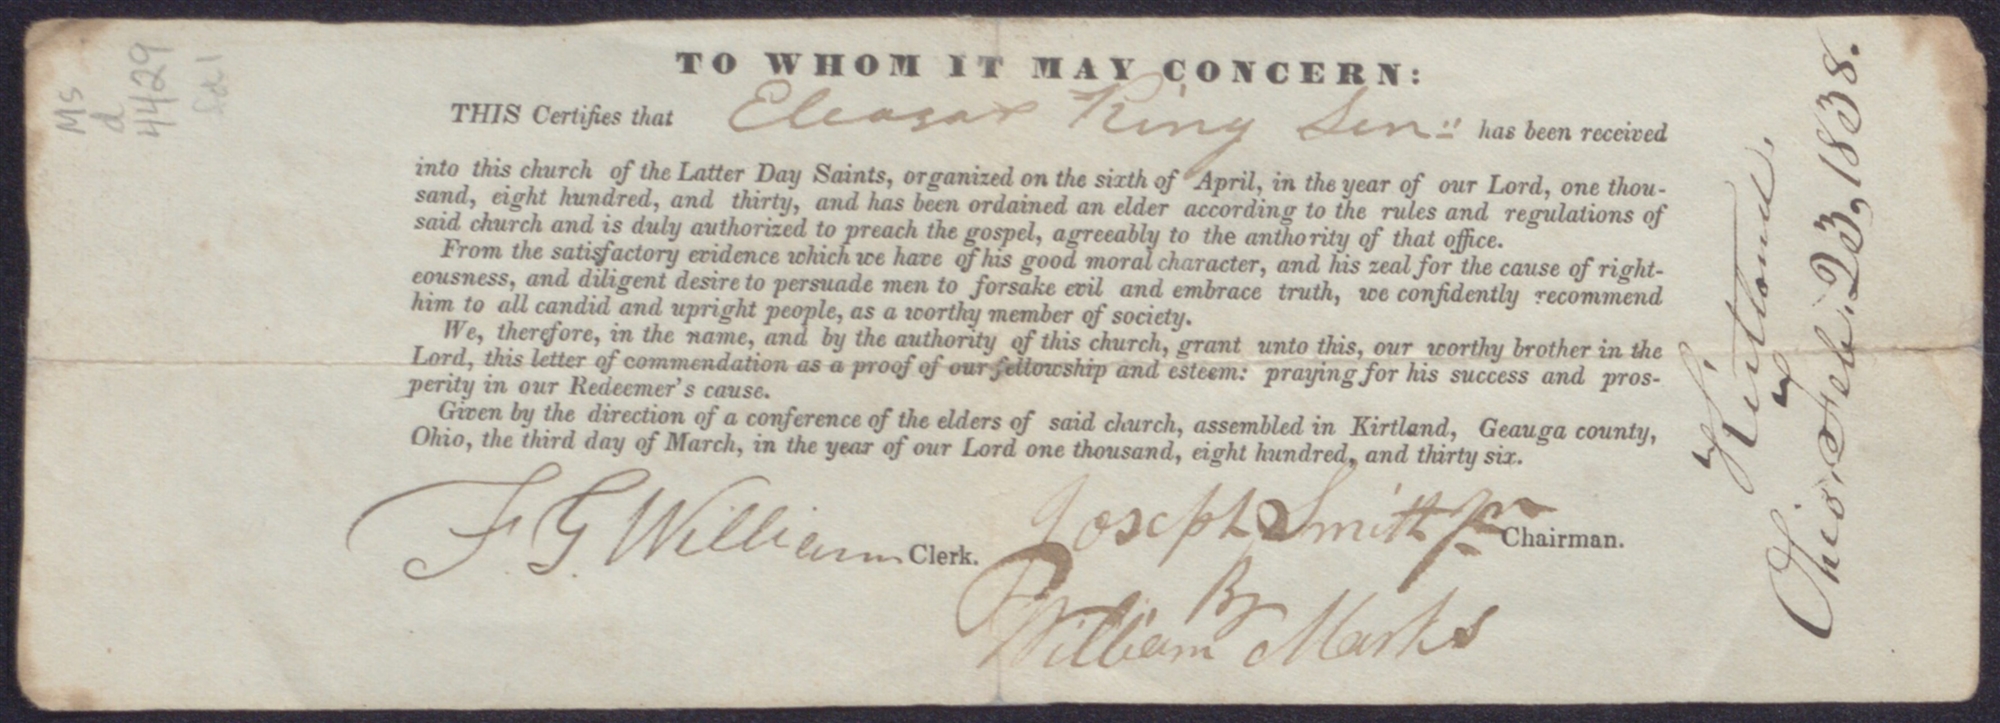 TO WHOM IT MAY CONCERN:
THIS Certifies that Eleazar King Sen" has been received
into this church of the Latter Day Saints, organized on the sixth of April, in the year of our Lord, one thou-
sand, eight hundred, and thirty, and has been ordained an elder according to the rules and regulations of
said church and is duly authorized to preach the gospel, agreeably to the anthority of that office.
From the satisfactory evidence which we have of his good moral character, and his zeal for the cause of right-
eousness, and diligent desire to persuade men to forsake evil and embrace truth, we confidently recommend
him to all candid and upright people, as a worthy member of society.
We, therefore, in the name, and by the authority of this church, grant unto this, our worthy brother in the
Lord, this letter of commendation as a proof of our fellowship and esteem: praying for his success and pros-
perity in our Redeemer's cause.
Given by the direction of a conference of the elders of said church, assembled in Kirtland, Geauga county,
Ohio, the third day of March, in the year of our Lord one thousand, eight hundred, and thirty six.
F. G. Williams Clerk.
Joseph Smith Jr Chairman.
By
William Marks
Kirtland,
Ohio Feb. 23, 1838.
Ms
d
4429
fd 1